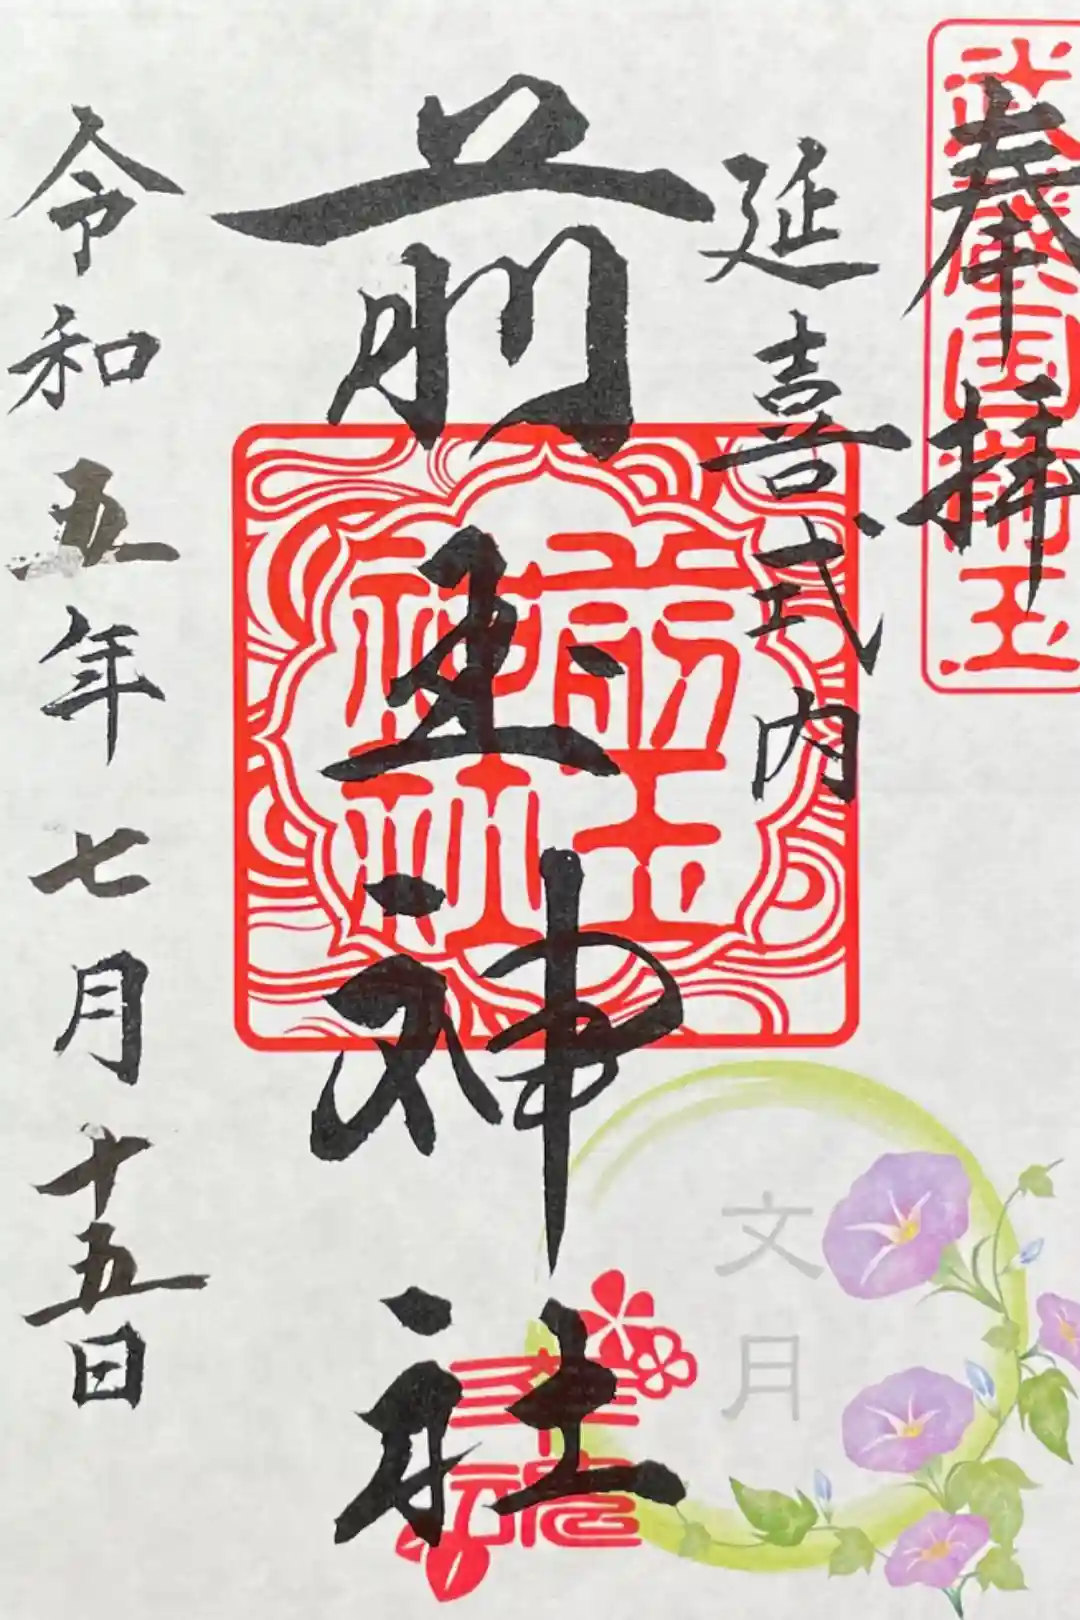 奉拝
武蔵国埼玉
延喜式内
前玉神社
前玉神社
文月
令和五年七月十五日